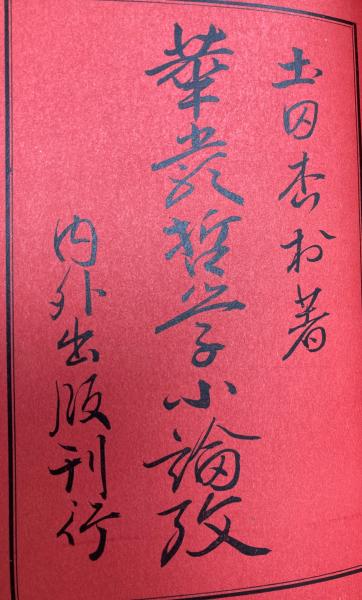 土田杏村著
華厳哲学小論攷
内外出版刊行